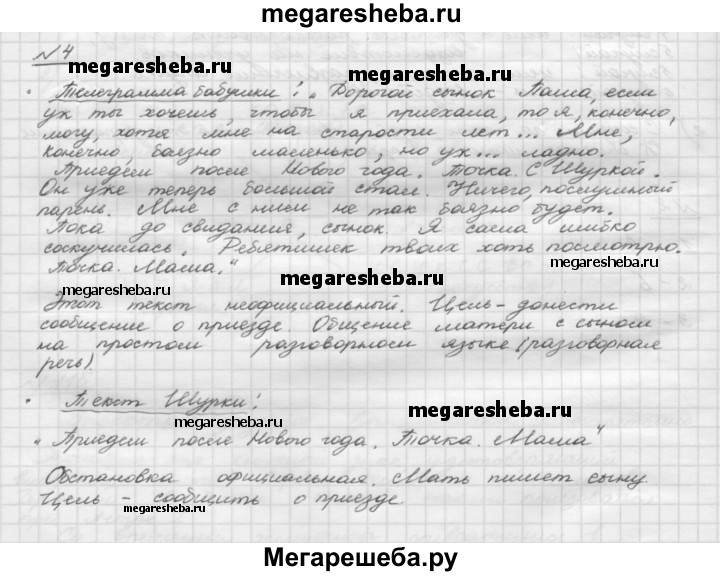 megaresheba.ru
№4
megaresheba.ru
• Телеграмма бабушки: „Дорогой сынок Паша, если
уж ты хочешь, чтобы я приехала, то я, конечно,
могу, хотя мне на старости лет... Мне,
megaresheba.ru
конечно, боязно маленько, но уж... ладно.
Приедем после Нового года. Точка. С Шуркой.
Он уже теперь большой стал. Ничего, послушный
парень. Мне с ним не так боязно будет.
Пока до свидания, сынок. Я сама шибко
соскучилась. Ребятишек твоих хоть посмотрю.
Точка. Маша."
megaresheba.ru
megaresheba.ru
Этот текст неофициальный. Цель - донести
сообщение о приезде. Общение матери с сыном
на простом разговорном языке (разговорная
речь)
• Текст Шурки:
megaresheba.ru
megaresheba.ru
„Приедем после Нового года. Точка. Маша"
Обстановка официальная. Мать пишет сыну.
Цель - сообщить о приезде.
megaresheba.ru
megaresheba.ru
Мегарешеба.ру